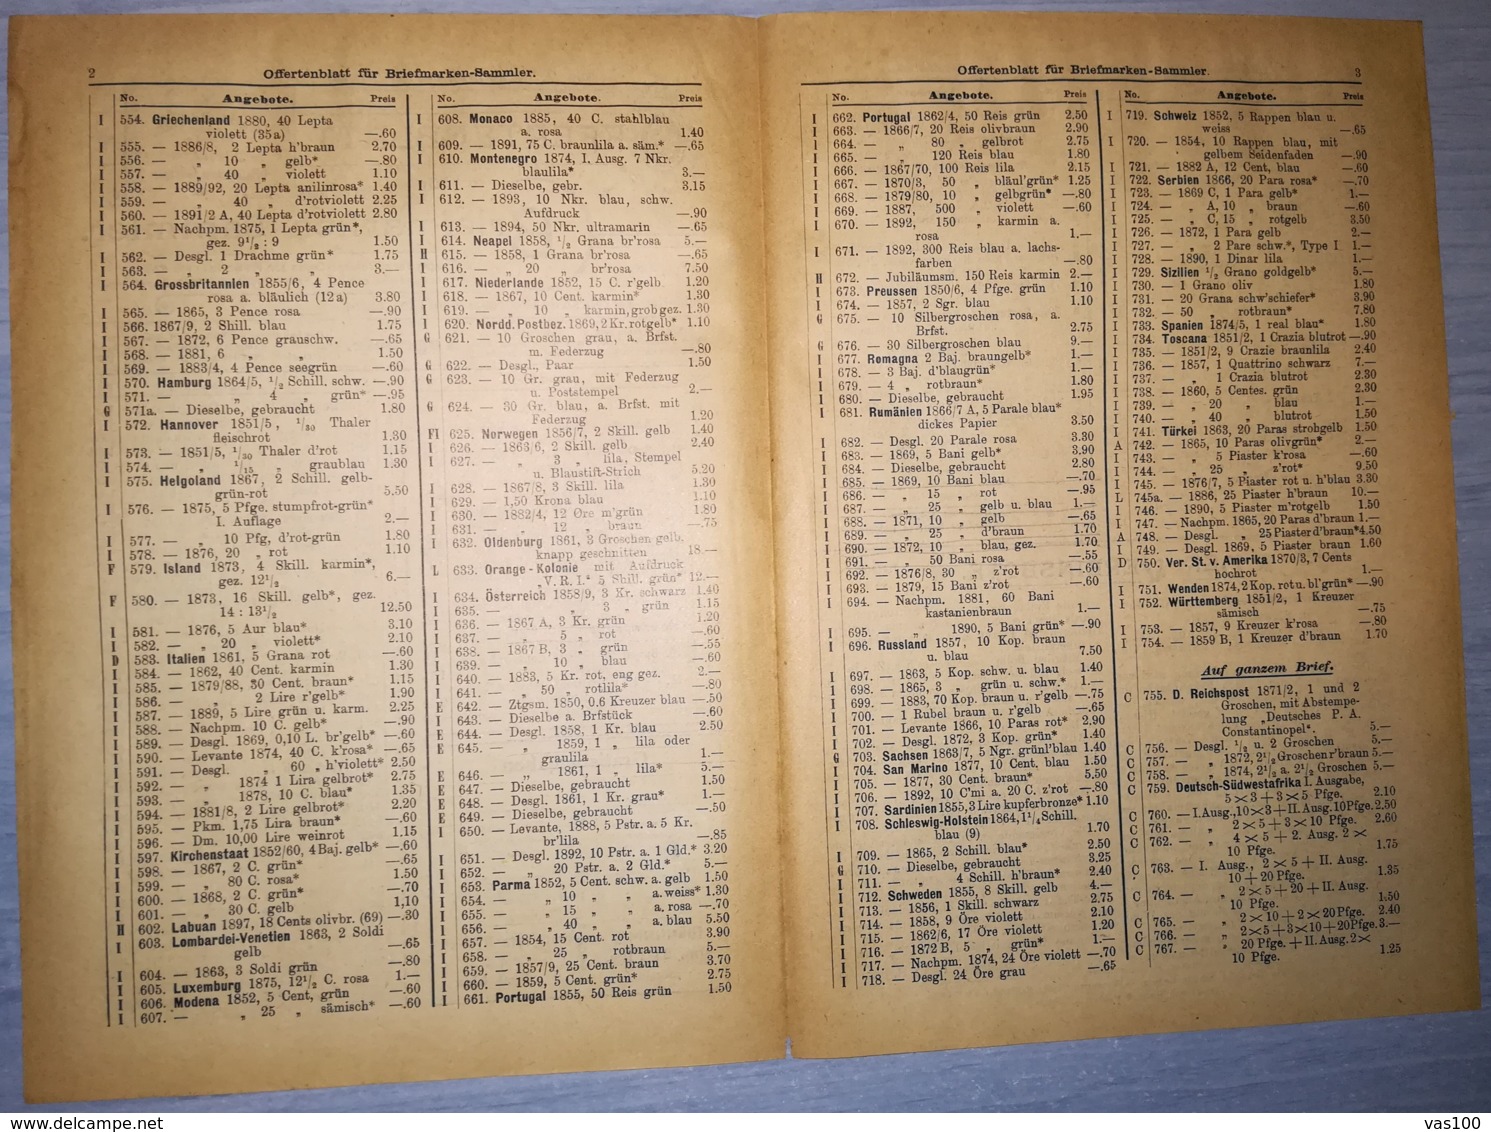 2
Offertenblatt für Briefmarken-Sammler.
No. Angebote. Preis
I 554. Griechenland 1880, 40 Lepta
violett (35 a) —.60
I 555. — 1886/8, 2 Lepta h'braun 2.70
I 556. — „ 10 „ gelb* —.80
I 557. — „ 40 „ violett 1.10
I 558. — 1889/92, 20 Lepta anilinrosa* 1.40
I 559. — „ 40 „ d'rotviolett 2.25
I 560. — 1891/2 A, 40 Lepta d'rotviolett 2.80
I 561. — Nachpm. 1875, 1 Lepta grün*,
gez. 9½ : 9 1.50
I 562. — Desgl. 1 Drachme grün* 1.75
I 563. — „ 2 „ „ 3.—
I 564. Grossbritannien 1855/6, 4 Pence
rosa a. bläulich (12 a) 3.80
I 565. — 1865, 3 Pence rosa —.90
I 566. 1867/9, 2 Shill. blau 1.75
I 567. — 1872, 6 Pence grauschw. —.65
I 568. — 1881, 6 „ „ 1.50
I 569. — 1883/4, 4 Pence seegrün —.60
I 570. Hamburg 1864/5, ½ Schill. schw. —.90
I 571. — „ 4 „ grün* —.95
G 571a. — Dieselbe, gebraucht 1.80
I 572. Hannover 1851/5, 1/30 Thaler
fleischrot 1.30
I 573. — 1851/5, 1/30 Thaler d'rot 1.15
I 574. — „ 1/15 „ graublau 1.30
I 575. Helgoland 1867, 2 Schill. gelb-
grün-rot 5.50
I 576. — 1875, 5 Pfge. stumpfrot-grün*
I. Auflage 2.—
I 577. — „ 10 Pfg. d'rot-grün 1.80
I 578. — 1876, 20 „ rot 1.10
F 579. Island 1873, 4 Skill. karmin*,
gez. 12½ 6.—
F 580. — 1873, 16 Skill. gelb*, gez.
14 : 13½ 12.50
I 581. — 1876, 5 Aur blau* 3.10
I 582. — „ 20 „ violett* 2.10
D 583. Italien 1861, 5 Grana rot —.60
I 584. — 1862, 40 Cent. karmin 1.30
I 585. — 1879/88, 30 Cent. braun* 1.15
I 586. — „ 2 Lire r'gelb* 1.90
I 587. — 1889, 5 Lire grün u. karm. 2.25
I 588. — Nachpm. 10 C. gelb* —.90
I 589. — Desgl. 1869, 0,10 L. br'gelb* —.60
I 590. — Levante 1874, 40 C. k'rosa* —.65
I 591. — Desgl. „ 60 „ h'violett* 2.50
I 592. — „ 1874 1 Lira gelbrot* 2.75
I 593. — „ 1878, 10 C. blau* 1.35
I 594. — 1881/8, 2 Lire gelbrot* 2.20
I 595. — Pkm. 1,75 Lira braun* —.60
I 596. — Dm. 10,00 Lire weinrot 1.15
I 597. Kirchenstaat 1852/60, 4 Baj. gelb* —.60
I 598. — 1867, 2 C. grün* —.65
I 599. — „ 80 C. rosa* 1.50
I 600. — 1868, 2 C. grün* —.70
I 601. — „ 30 C. gelb 1,10
H 602. Labuan 1897, 18 Cents olivbr. (69) —.30
I 603. Lombardei-Venetien 1863, 2 Soldi
gelb —.65
I 604. — 1863, 3 Soldi grün —.80
I 605. Luxemburg 1875, 12½ C. rosa 1.—
I 606. Modena 1852, 5 Cent, grün —.60
I 607. — „ 25 „ sämisch* —.60
No. Angebote. Preis
I 608. Monaco 1885, 40 C. stahlblau
a. rosa 1.40
I 609. — 1891, 75 C. braunlila a. säm.* —.65
I 610. Montenegro 1874, I. Ausg. 7 Nkr.
blaulila* 3.—
I 611. — Dieselbe, gebr. 3.15
I 612. — 1893, 10 Nkr. blau, schw.
Aufdruck —.90
I 613. — 1894, 50 Nkr. ultramarin —.65
I 614. Neapel 1858, ½ Grana br'rosa 5.—
H 615. — 1858, 1 Grana br'rosa —.65
I 616. — „ 20 „ br'rosa 7.50
I 617. Niederlande 1852, 15 C. r'gelb 1.20
I 618. — 1867, 10 Cent. karmin* 1.30
I 619. — „ 10 „ karmin, grob gez. 1.30
I 620. Nordd. Postbez. 1869, 2 Kr. rotgelb* 1.10
G 621. — 10 Groschen grau, a. Brfst.
m. Federzug —.80
G 622. — Desgl., Paar 1.50
G 623. — 10 Gr. grau, mit Federzug
u. Poststempel 2.—
G 624. — 30 Gr. blau, a. Brfst. mit
Federzug 1.20
FI 625. Norwegen 1856/7, 2 Skill. gelb 1.40
I 626. — 1863/6, 2 Skill. gelb 2.40
I 627. — „ 3 „ lila, Stempel
u. Blaustift-Strich 5.20
I 628. — 1867/8, 3 Skill. lila 1.30
I 629. — 1,50 Krona blau 1.10
I 630. — 1882/4, 12 Øre m'grün 1.80
I 631. — „ 12 „ braun —.75
I 632. Oldenburg 1861, 3 Groschen gelb,
knapp geschnitten 18.—
L 633. Orange-Kolonie mit Aufdruck
„V. R. I." 5 Shill. grün* 12.—
I 634. Österreich 1858/9, 3 Kr. schwarz 1.40
I 635. — „ 3 „ grün 1.15
I 636. — 1867 A, 3 Kr. grün 1.20
I 637. — „ 5 „ rot —.60
I 638. — 1867 B, 3 „ grün —.55
I 639. — „ 10 „ blau —.60
I 640. — 1883, 5 Kr. rot, eng gez. 2.—
I 641. — „ 50 „ rotlila* —.80
E 642. — Ztgsm. 1850, 0.6 Kreuzer blau —.50
I 643. — Dieselbe a. Brfstück —.60
E 644. — Desgl. 1858, 1 Kr. blau 2.50
E 645. — „ 1859, 1 „ lila oder
graulila 1.—
E 646. — „ 1861, 1 „ lila* 5.—
E 647. — Dieselbe, gebraucht 1.50
E 648. — Desgl. 1861, 1 Kr. grau* 1.—
E 649. — Dieselbe, gebraucht —.50
I 650. — Levante, 1888, 5 Pstr. a. 5 Kr.
br'lila —.85
I 651. — Desgl. 1892, 10 Pstr. a. 1 Gld.* 3.20
I 652. — „ 20 Pstr. a. 2 Gld.* 5.—
I 653. Parma 1852, 5 Cent. schw. a. gelb 1.50
I 654. — „ 10 „ „ a. weiss* 1.30
I 655. — „ 15 „ „ a. rosa —.70
I 656. — „ 40 „ „ a. blau 5.50
I 657. — 1854, 15 Cent. rot 3.90
I 658. — „ 25 „ rotbraun 5.—
I 659. — 1857/9, 25 Cent. braun 3.70
I 660. — 1859, 5 Cent. grün* 2.75
I 661. Portugal 1855, 50 Reis grün 1.50
Offertenblatt für Briefmarken-Sammler.
3
No. Angebote. Preis
I 662. Portugal 1862/4, 50 Reis grün 2.50
I 663. — 1866/7, 20 Reis olivbraun 2.90
I 664. — „ 80 „ gelbrot 2.75
I 665. — „ 120 Reis blau 1.80
I 666. — 1867/70, 100 Reis lila 2.15
I 667. — 1870/3, 50 „ bläul'grün* 1.25
I 668. — 1879/80, 10 „ gelbgrün* —.80
I 669. — 1887, 500 „ violett —.60
I 670. — 1892, 150 „ karmin a.
rosa 1.—
I 671. — 1892, 300 Reis blau a. lachs-
farben —.80
H 672. — Jubiläumsm. 150 Reis karmin 2.—
I 673. Preussen 1850/6, 4 Pfge. grün 1.10
I 674. — 1857, 2 Sgr. blau 1.10
G 675. — 10 Silbergroschen rosa, a.
Brfst. 2.75
G 676. — 30 Silbergroschen blau 9.—
I 677. Romagna 2 Baj. braungelb* 1.—
I 678. — 3 Baj. d'blaugrün* 1.—
I 679. — 4 „ rotbraun* 1.80
I 680. — Dieselbe, gebraucht 1.95
I 681. Rumänien 1866/7 A, 5 Parale blau*
dickes Papier 3.50
I 682. — Desgl. 20 Parale rosa 3.30
I 683. — 1869, 5 Bani gelb* 3.90
I 684. — Dieselbe, gebraucht 2.80
I 685. — 1869, 10 Bani blau —.70
I 686. — „ 15 „ rot —.95
I 687. — „ 25 „ gelb u. blau 1.—
I 688. — 1871, 10 „ gelb —.65
I 689. — „ 25 „ d'braun 1.70
I 690. — 1872, 10 „ blau, gez. 1.70
I 691. — „ 50 Bani rosa —.55
I 692. — 1876/8, 30 „ z'rot —.60
I 693. — 1879, 15 Bani z'rot —.60
I 694. — Nachpm. 1881, 60 Bani
kastanienbraun 1.—
I 695. — „ 1890, 5 Bani grün* —.90
I 696. Russland 1857, 10 Kop. braun
u. blau 7.50
I 697. — 1863, 5 Kop. schw. u. blau 1.40
I 698. — 1865, 3 „ grün u. schw.* 1.—
I 699. — 1883, 70 Kop. braun u. r'gelb —.75
I 700. — 1 Rubel braun u. r'gelb —.65
I 701. — Levante 1866, 10 Paras rot* 2.90
I 702. — Desgl. 1872, 3 Kop. grün* 1.40
G 703. Sachsen 1863/7, 5 Ngr. grünl'blau 1.40
I 704. San Marino 1877, 10 Cent. blau 1.50
I 705. — 1877, 30 Cent. braun* 5.50
I 706. — 1892, 10 C'mi a. 20 C. z'rot —.80
I 707. Sardinien 1855, 3 Lire kupferbronze* 1.10
I 708. Schleswig-Holstein 1864, 1¼ Schill.
blau (9) 1.70
I 709. — 1865, 2 Schill. blau* 2.50
G 710. — Dieselbe, gebraucht 3.25
I 711. — „ 4 Schill. h'braun* 2.40
I 712. Schweden 1855, 8 Skill. gelb 4.—
I 713. — 1856, 1 Skill. schwarz 2.75
I 714. — 1858, 9 Öre violett 2.10
I 715. — 1862/6, 17 Öre violett 1.20
I 716. — 1872 B, 5 „ grün* 1.—
I 717. — Nachpm. 1874, 24 Öre violett —.70
I 718. — Desgl. 24 Öre grau —.65
No. Angebote. Preis
I 719. Schweiz 1852, 5 Rappen blau u.
weiss —.65
I 720. — 1854, 10 Rappen blau, mit
gelbem Seidenfaden —.90
I 721. — 1882 A, 12 Cent, blau —.60
I 722. Serbien 1866, 20 Para rosa* —.70
I 723. — 1869 C, 1 Para gelb* 1.—
I 724. — „ A, 10 „ braun —.60
I 725. — „ C, 15 „ rotgelb 3.50
I 726. — 1872, 1 Para gelb 2.—
I 727. — „ 2 Pare schw.*, Type I 1.—
I 728. — 1890, 1 Dinar lila 1.—
I 729. Sizilien ½ Grano goldgelb* 5.—
I 730. — 1 Grano oliv 1.80
I 731. — 20 Grana schw'schiefer* 3.90
I 732. — 50 „ rotbraun* 7.80
I 733. Spanien 1874/5, 1 real blau* 1.80
I 734. Toscana 1851/2, 1 Crazia blutrot —.90
I 735. — 1851/2, 9 Crazie braunlila 2.40
I 736. — 1857, 1 Quattrino schwarz 7.—
I 737. — „ 1 Crazia blutrot 2.30
I 738. — 1860, 5 Centes. grün 2.30
I 739. — „ 20 „ blau 1.—
I 740. — „ 40 „ blutrot 1.50
I 741. Türkei 1863, 20 Paras strohgelb 1.50
A 742. — 1865, 10 Paras olivgrün* 2.—
I 743. — „ 5 Piaster k'rosa —.60
I 744. — „ 25 „ z'rot* 9.50
I 745. — 1876/7, 5 Piaster rot u. h'blau 3.30
L 745a. — 1886, 25 Piaster h'braun 10.—
I 746. — 1890, 5 Piaster m'rotgelb 1.50
I 747. — Nachpm. 1865, 20 Paras d'braun 1.—
A 748. — Desgl. „ 25 Piaster d'braun* 4.50
I 749. — Desgl. 1869, 5 Piaster braun 1.60
D 750. Ver. St. v. Amerika 1870/3, 7 Cents
hochrot 1.—
I 751. Wenden 1874, 2 Kop. rot u. bl'grün* —.90
I 752. Württemberg 1851/2, 1 Kreuzer
sämisch —.75
I 753. — 1857, 9 Kreuzer k'rosa —.80
I 754. — 1859 B, 1 Kreuzer d'braun 1.70
Auf ganzem Brief.
C 755. D. Reichspost 1871/2, 1 und 2
Groschen, mit Abstempe-
lung „Deutsches P. A.
Constantinopel". 5.—
C 756. — Desgl. ½ u. 2 Groschen 5.—
C 757. — „ 1872, 2½ Groschen r'braun 5.—
C 758. — „ 1874, 2½ a. 2½ Groschen 5.—
C 759. Deutsch-Südwestafrika I. Ausgabe,
5 × 3 + 3 × 5 Pfge. 2.10
C 760. — I. Ausg., 10 × 3 + II. Ausg. 10 Pfge. 2.50
C 761. — „ 2 × 5 + 3 × 10 Pfge. 2.60
C 762. — „ 4 × 5 + 2. Ausg. 2 ×
10 Pfge. 1.75
C 763. — I. Ausg., 2 × 5 + II. Ausg.
10 + 20 Pfge. 1.35
C 764. — „ 2 × 5 + 20 + II. Ausg.
10 Pfge. 1.50
C 765. — „ 2 × 10 + 2 × 20 Pfge. 2.40
C 766. — „ 2 × 5 + 2 × 20 Pfge. 3.—
C 767. — „ 20 Pfge. + II. Ausg. 2 ×
10 Pfge. 1.25
delcampe.net
vas100